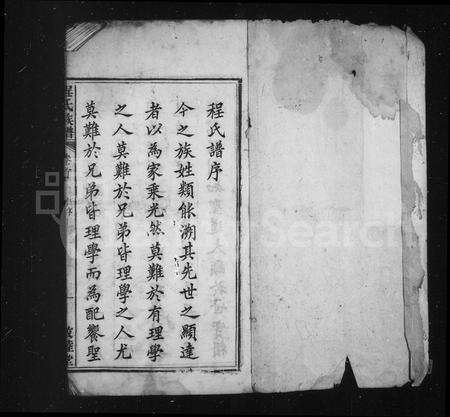 程氏譜序
今之族姓類能溯其先世之顯達
者以為家乘光然莫難於有理學
之人莫難於兄弟皆理學之人尤
莫難於兄弟皆理學而為配饗聖
程氏族譜
序